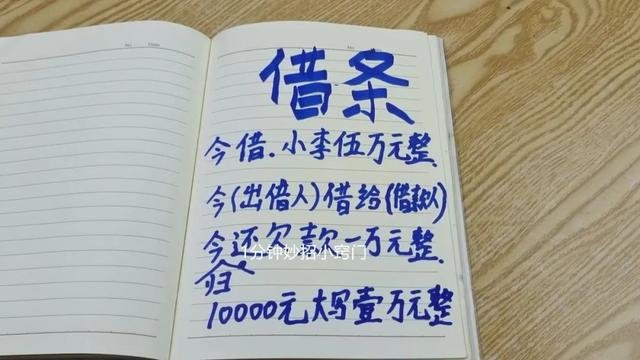 No Date
No Date
借条
今借.小李伍万元整.
今(出借人)借给(借款人)
今还欠款一万元整.
归
1分钟妙招小窍门
10000元大写壹万元整